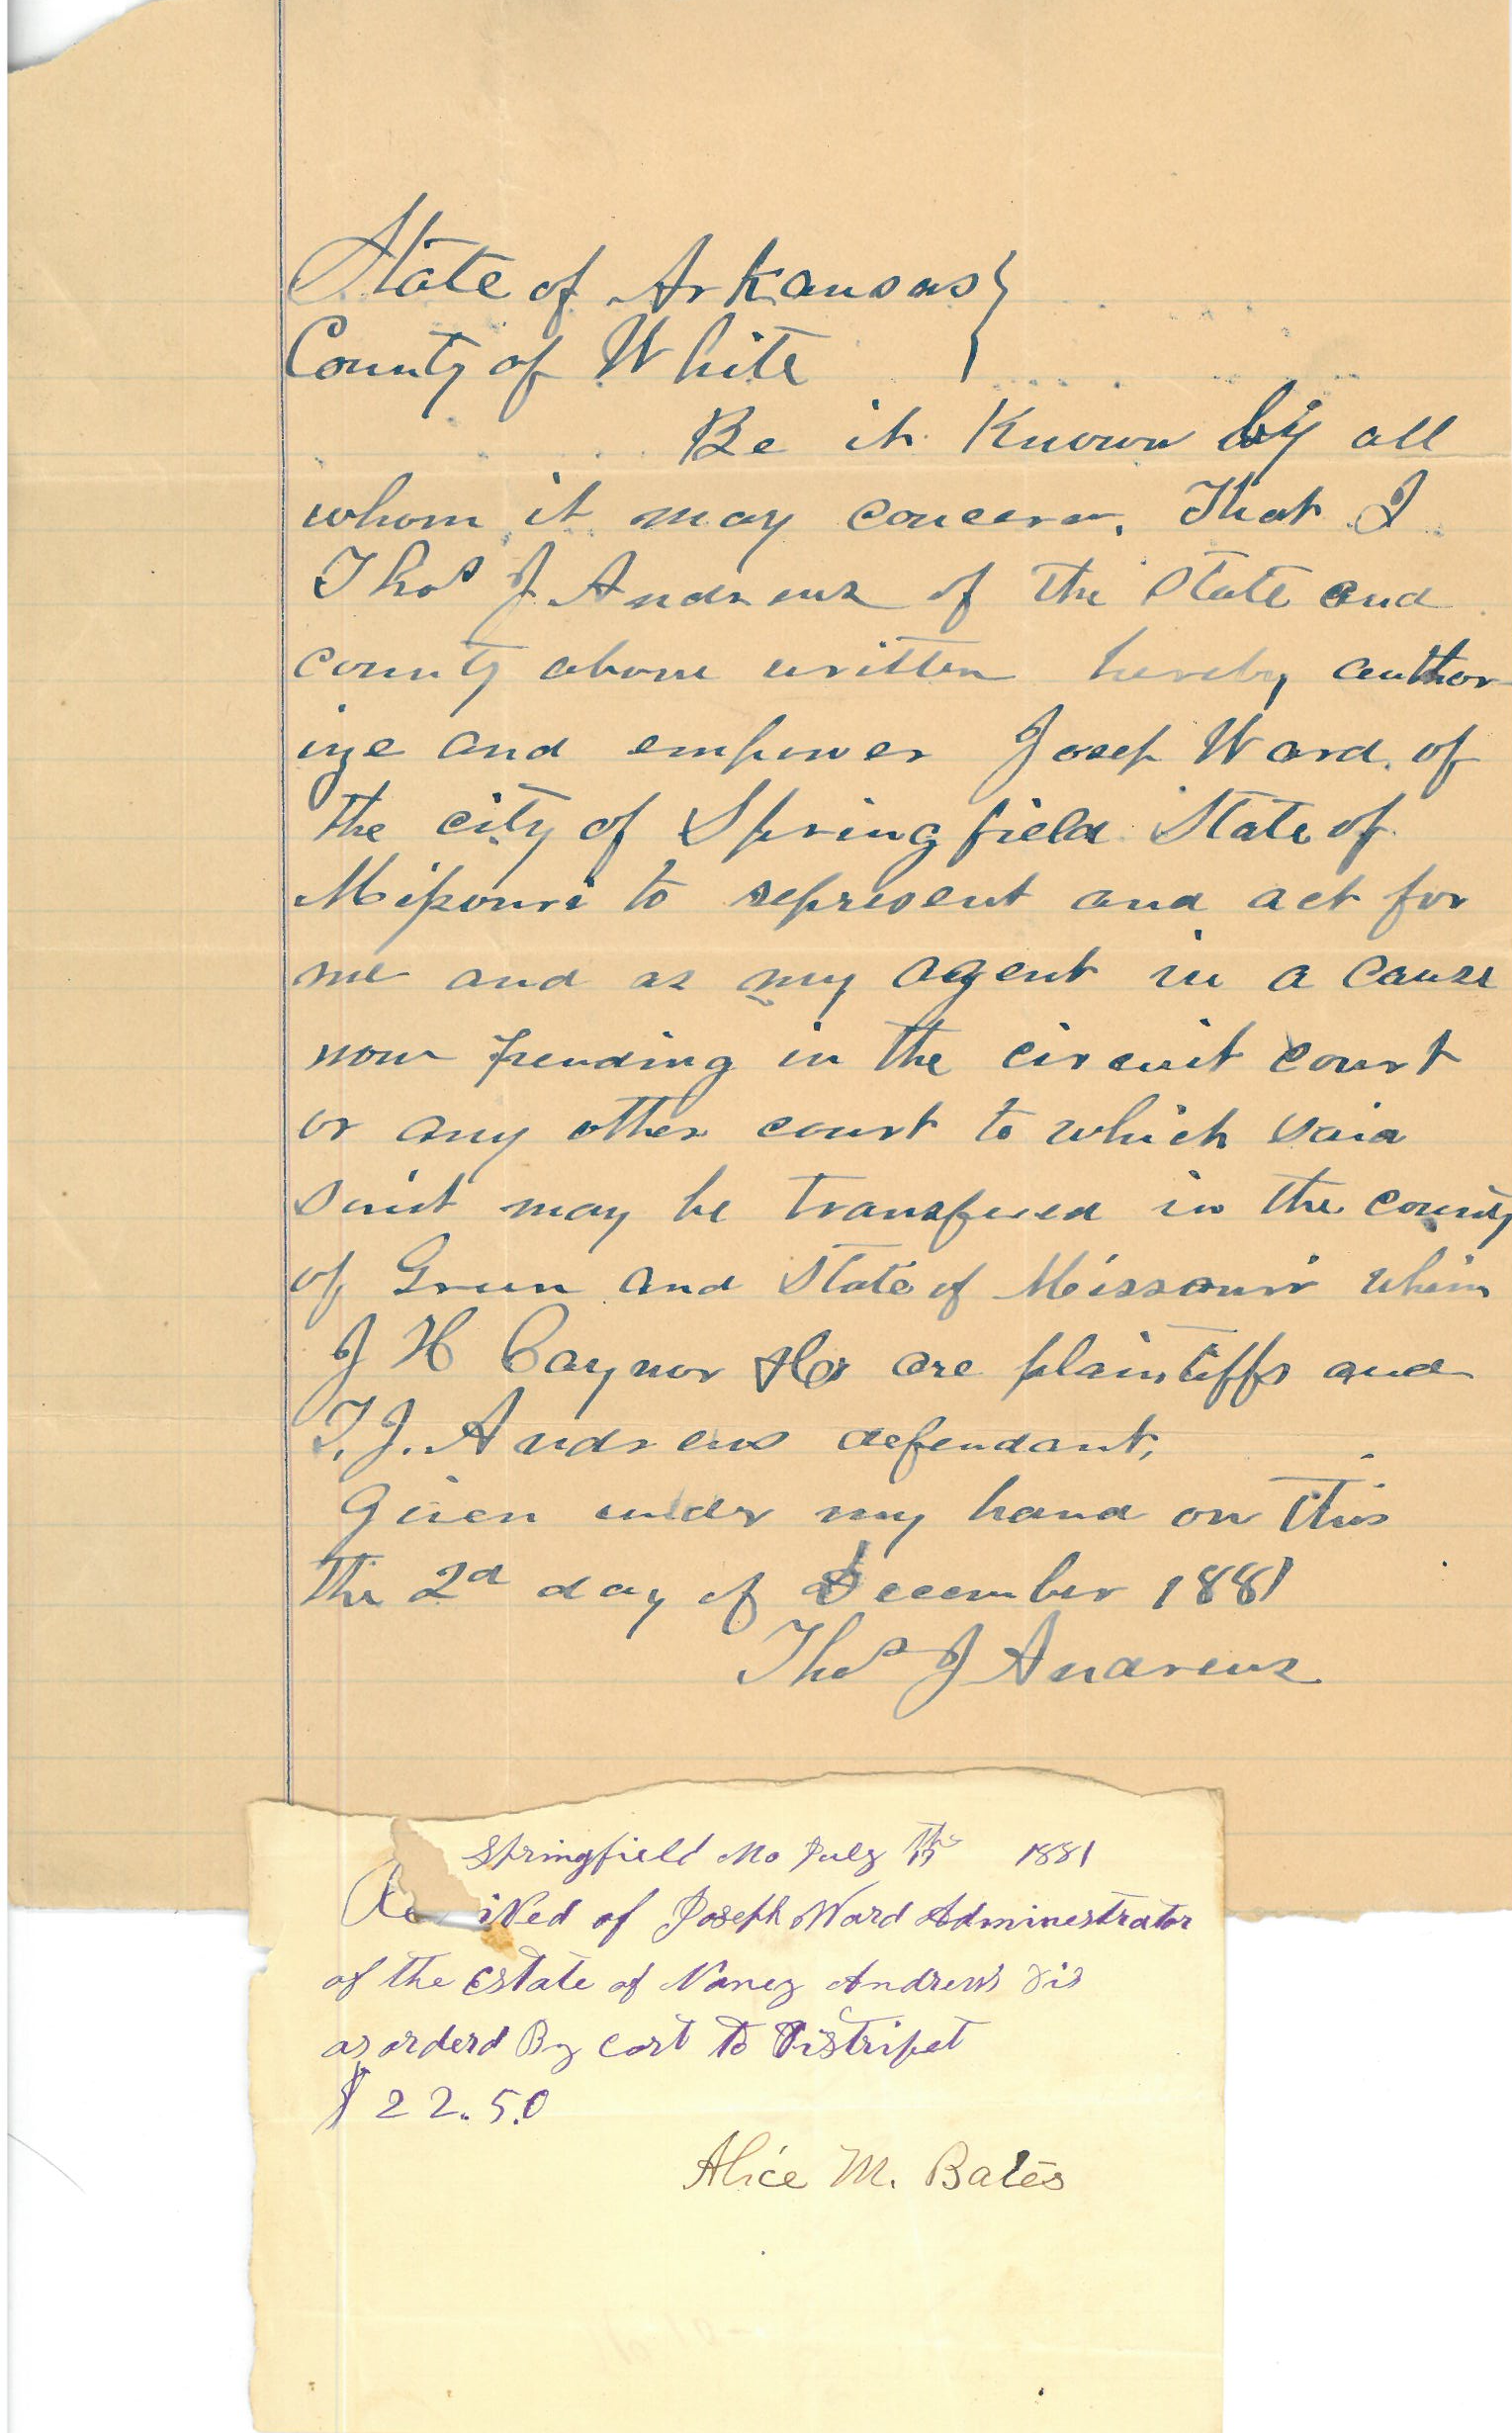 State of Arkansas }
County of White }
Be it Known by all
whom it may concern, That I
Thos J Andrews of the State and
county above written hereby author
ize and empower Josep Ward. of
the city of Springfield State of
Missouri to represent and act for
me and as my agent in a cause
now pending in the circuit court
or any other court to which said
suit may be transfered in the county
of Green and State of Missouri wherein
J H Caynor & Co are plaintiffs and
T. J. Andrews defendant,
Given under my hand on this
the 2d day of December 1881
Thos J Andrews
Springfield Mo July 1881
Received of Joseph Ward Administrator
of the Estate of Nancy Andrews
as orderd By Cort to
$ 22.50
Alice M. Bates